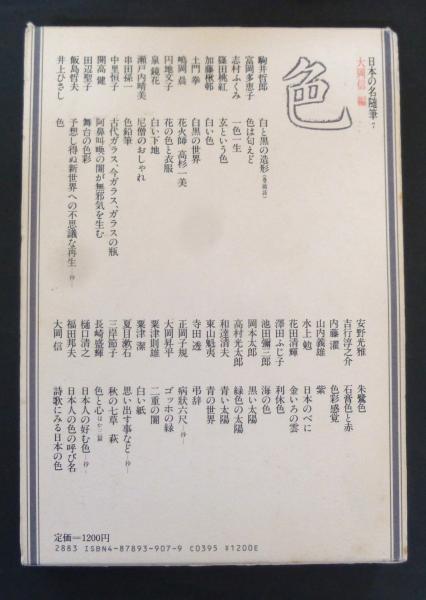 日本の名随筆 7
大岡信 編
色
駒井哲郎 白と黒の造形(巻頭詩)
富岡多恵子 色は匂えど
志村ふくみ 一色一生
篠田桃紅 玄という色
加藤楸邨 白い色
土門拳 白黒の世界
嶋岡晨 花火師 高杉一美
円地文子 花の色と衣服
泉鏡花 白い下地
瀬戸内晴美 尼僧のおしゃれ
串田孫一 色鉛筆
中里恒子 古代ガラス、今ガラス、ガラスの瓶
開高健 阿鼻叫喚の闇が無邪気を生む
田辺聖子 舞台の色彩
飯島哲夫 予想し得ぬ新世界への不思議な再生—抄—
井上ひさし 色
安野光雅 朱鷺色
吉行淳之介 石膏色と赤
内藤濯 色彩感覚
山内義雄 紫
水上勉 日本のべに
花田清輝 金いろの雲
澤田ふじ子 利休色
池田彌三郎 海の色
岡本太郎 黒い太陽
高村光太郎 緑色の太陽
和達清夫 青い太陽
東山魁夷 青の世界
寺田透 弔辞
正岡子規 病牀六尺—抄—
大岡昇平 ゴッホの緑
粟津則雄 二重の闇
粟津潔 白い紙
夏目漱石 思い出す事など—抄—
三岸節子 秋の七草 萩
長崎盛輝 色と心
樋口清之 日本人の好む色—抄—
福田邦夫 日本人の色の呼び名
大岡信 詩歌にみる日本の色
定価=1200円
2883 ISBN4-87893-907-9 C0395 ¥1200E